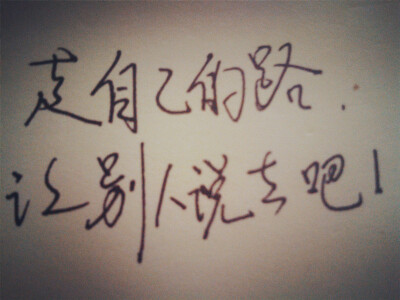 走自己的路.
让别人说去吧!